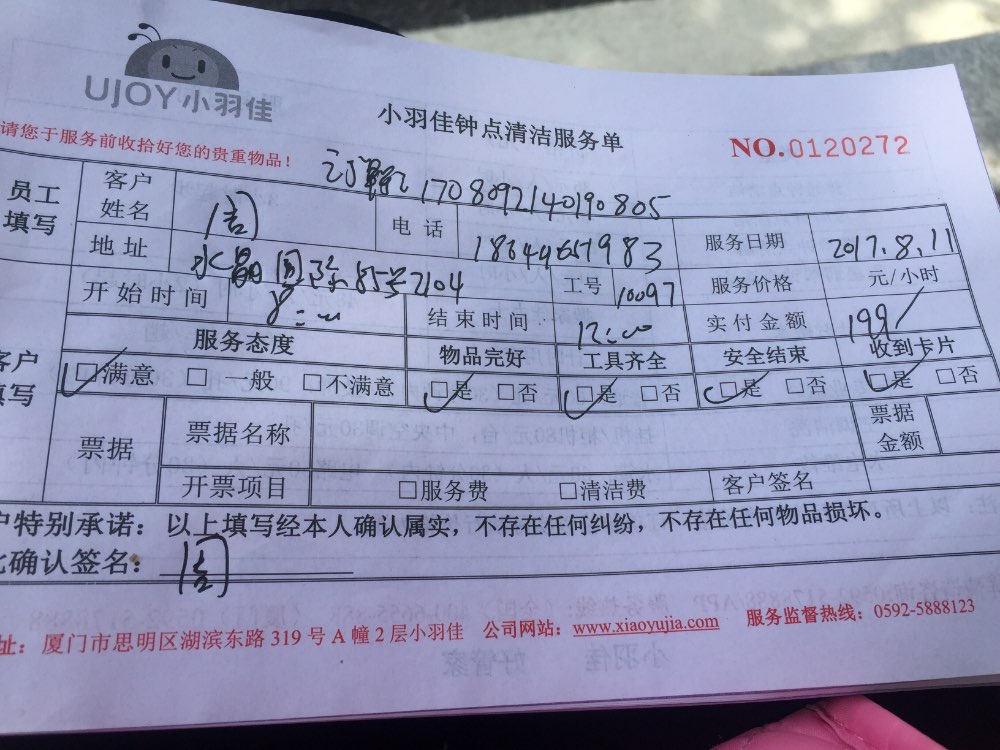 UJOY小羽佳
小羽佳钟点清洁服务单
NO.0120272
请您于服务前收拾好您的贵重物品！
订单 1708092140190805
员工填写
客户姓名 周 电话 18649667983 服务日期 2017.8.11
地址 水晶国际85号2104 工号 10097 服务价格 元/小时
开始时间 8:00 结束时间 12:00 实付金额 199
客户填写
服务态度 物品完好 工具齐全 安全结束 收到卡片
□满意 □一般 □不满意 □是 □否 □是 □否 □是 □否 □是 □否
票据 票据名称 票据金额
开票项目 □服务费 □清洁费 客户签名
户特别承诺：以上填写经本人确认属实，不存在任何纠纷，不存在任何物品损坏。
此确认签名： 周
址：厦门市思明区湖滨东路319号A幢2层小羽佳 公司网站：www.xiaoyujia.com 服务监督热线：0592-5888123